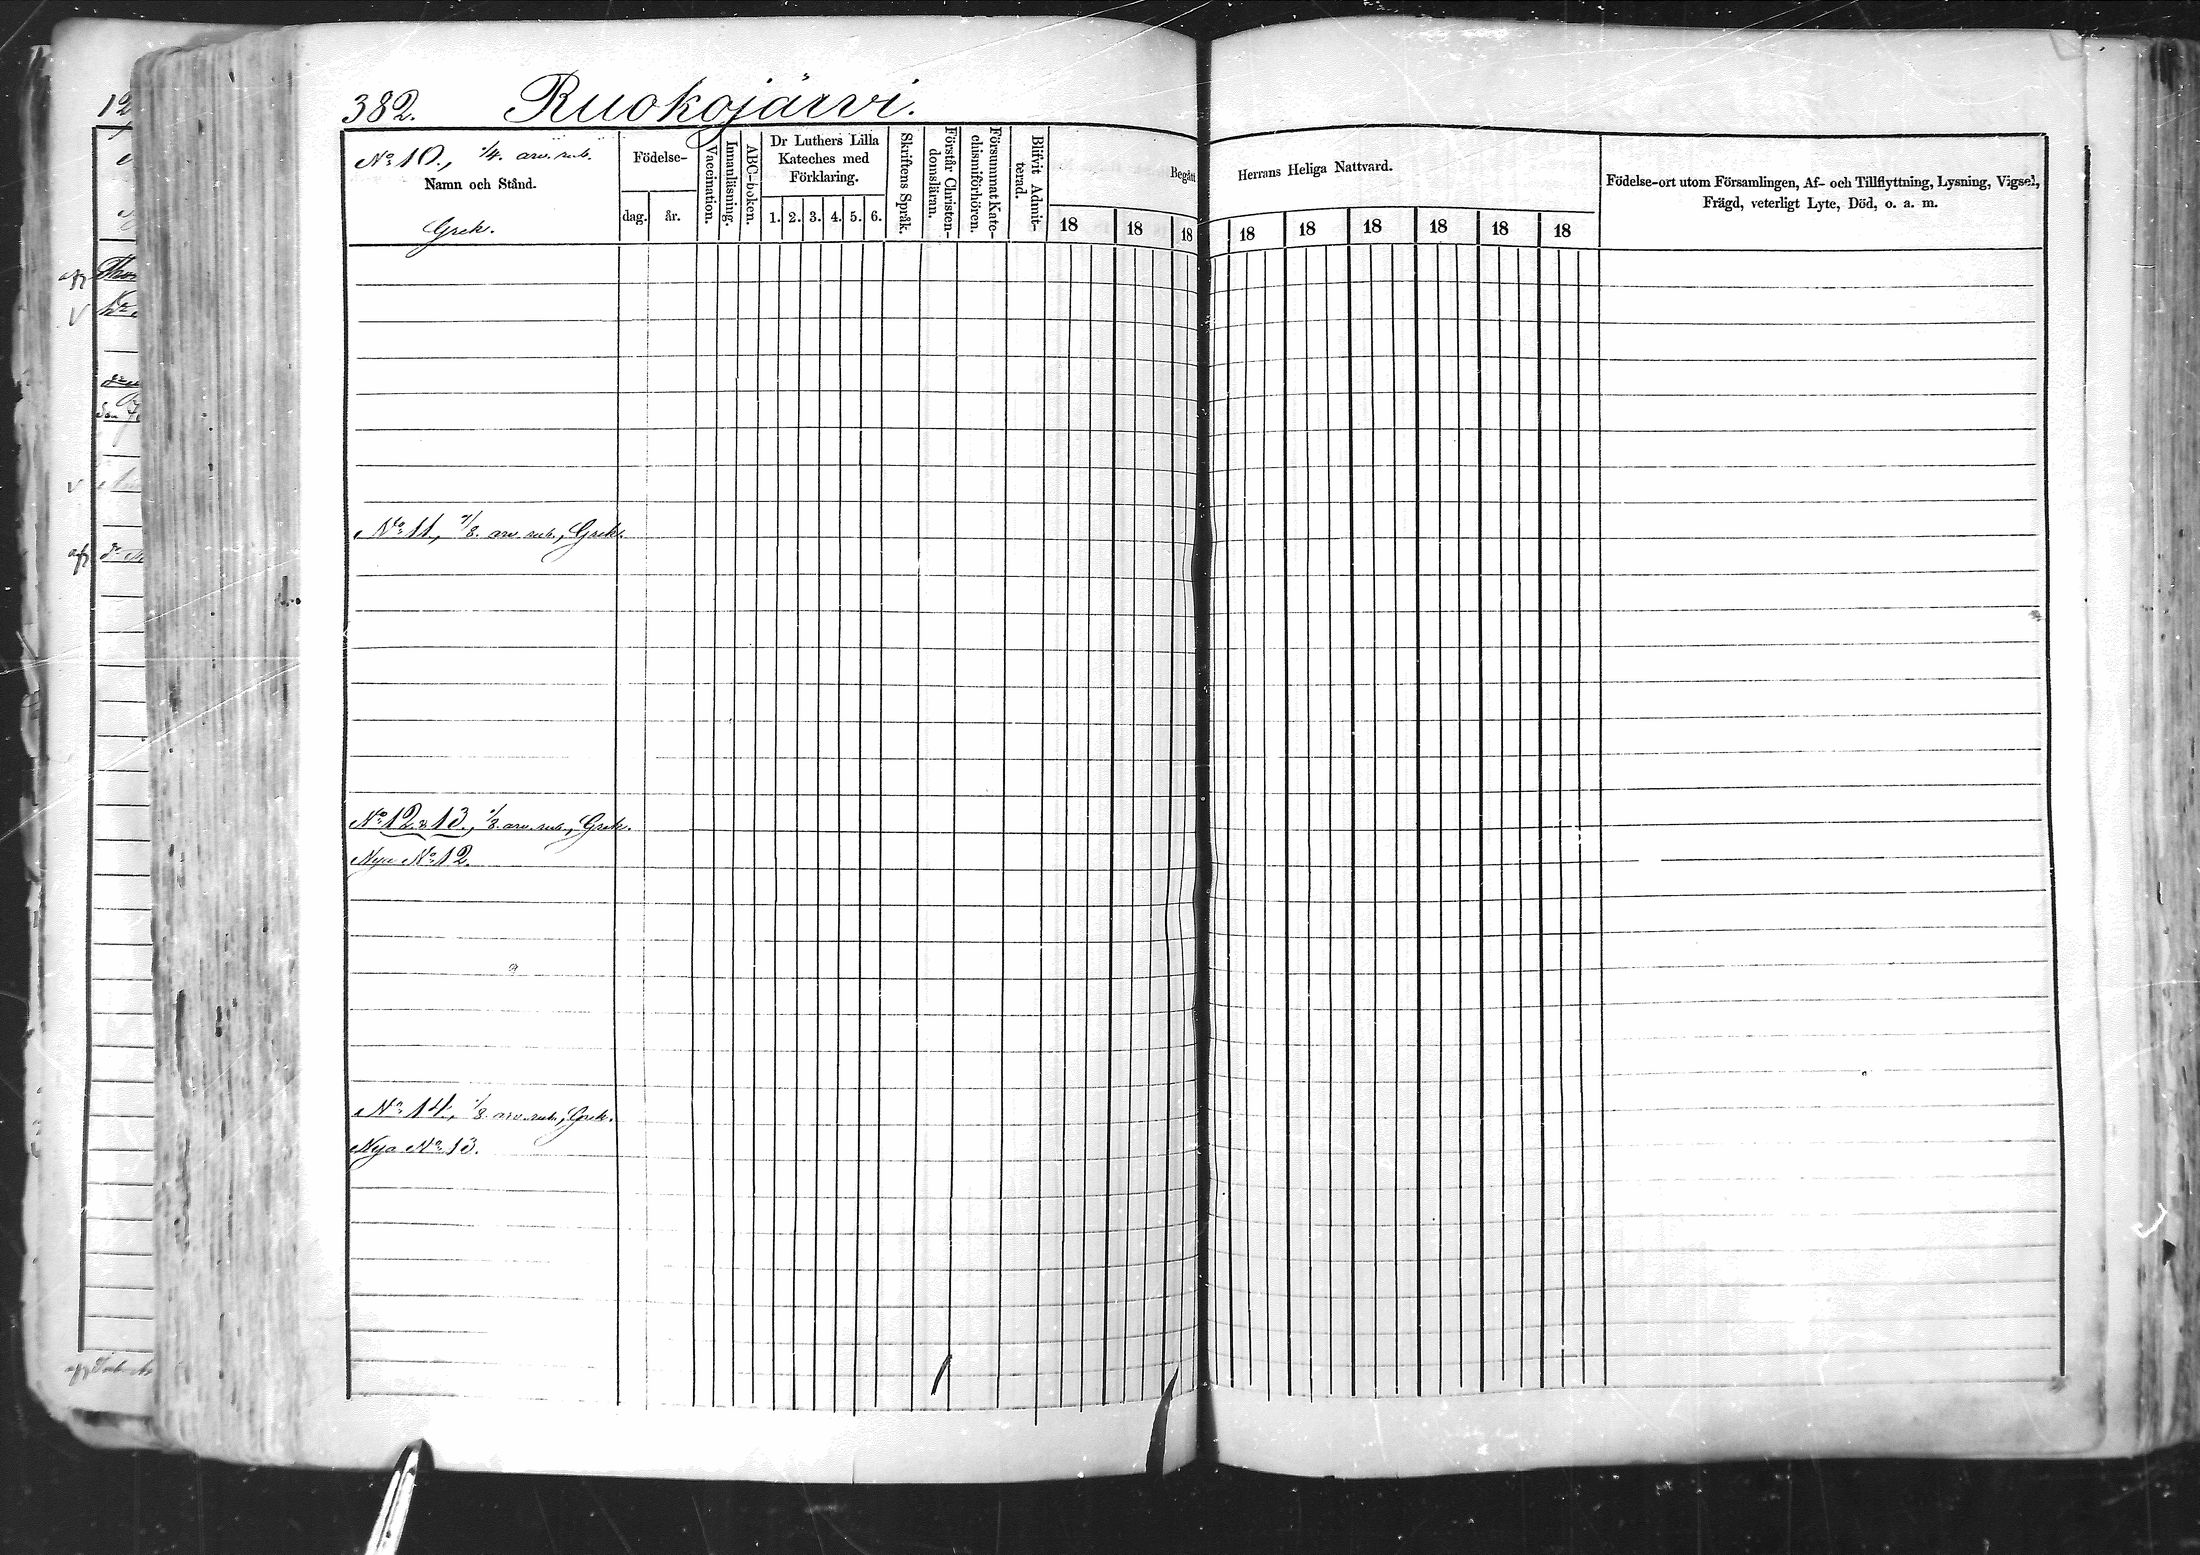 382. Ruokojärvi.
No 10., 1/4. arv. rub.
Namn och Stånd.
Grek.
Födelse-
dag. år.
Vaccination.
Innanläsning.
ABC-boken.
Dr Luthers Lilla
Kateches med
Förklaring.
1. 2. 3. 4. 5. 6.
Skriftens Språk.
Förstår Christen-
domsläran.
Försummat Kate-
chismiförhören.
Blifvit Admit-
terad.
Begått
18 18 18
Herrans Heliga Nattvard.
18 18 18 18 18 18
Födelse-ort utom Församlingen, Af- och Tillflyttning, Lysning, Vigsel,
Frägd, veterligt Lyte, Död, o. a. m.
No 11, 1/8. arv. rub., Grek.
No 12 & 13., 1/8. arv. rub., Grek.
Nya No 12.
No 14, 1/8. arv. rub., Grek.
Nya No 13.